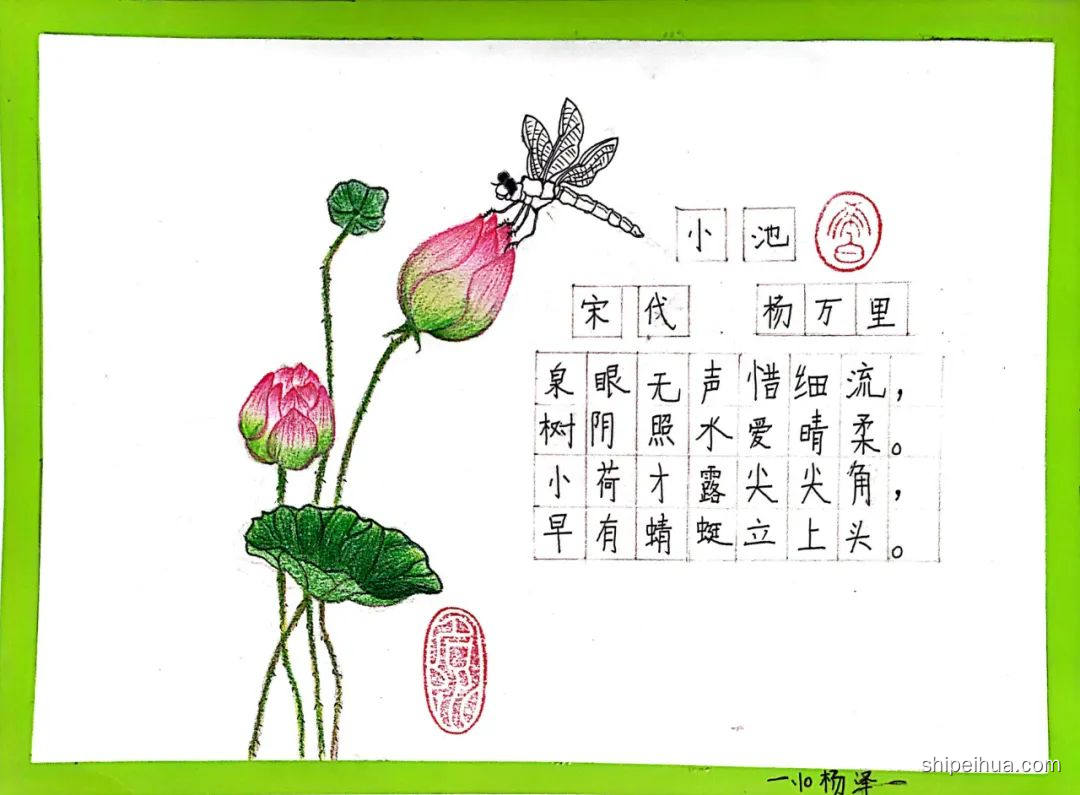 小池
宋伐 杨万里
泉眼无声惜细流，
树阴照水爱晴柔。
小荷才露尖尖角，
早有蜻蜓立上头。
shipeihua.com
杨泽一